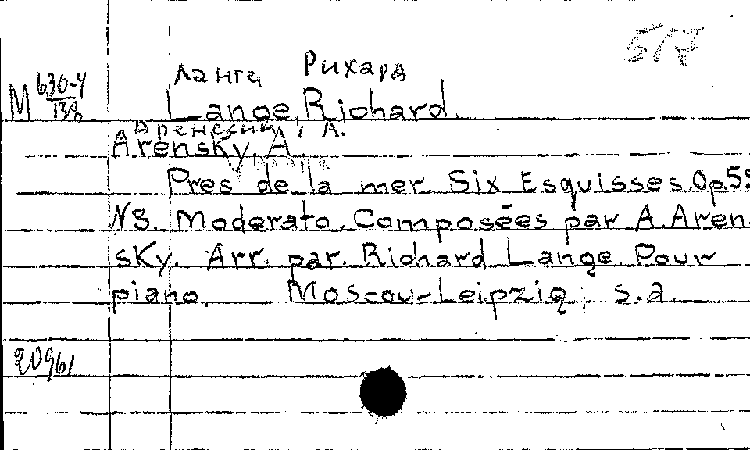 517
Ланге, Рихард
M 630-4/138
Lange, Richard.
Аренский, А.
Arensky, A.
Pres de la mer Six Esquisses. Op. 52
N3. Moderato. Composées par A. Aren-
sky. Arr. par. Richard Lange. Pour
piano. Moscou-Leipzig, s.a.
20961